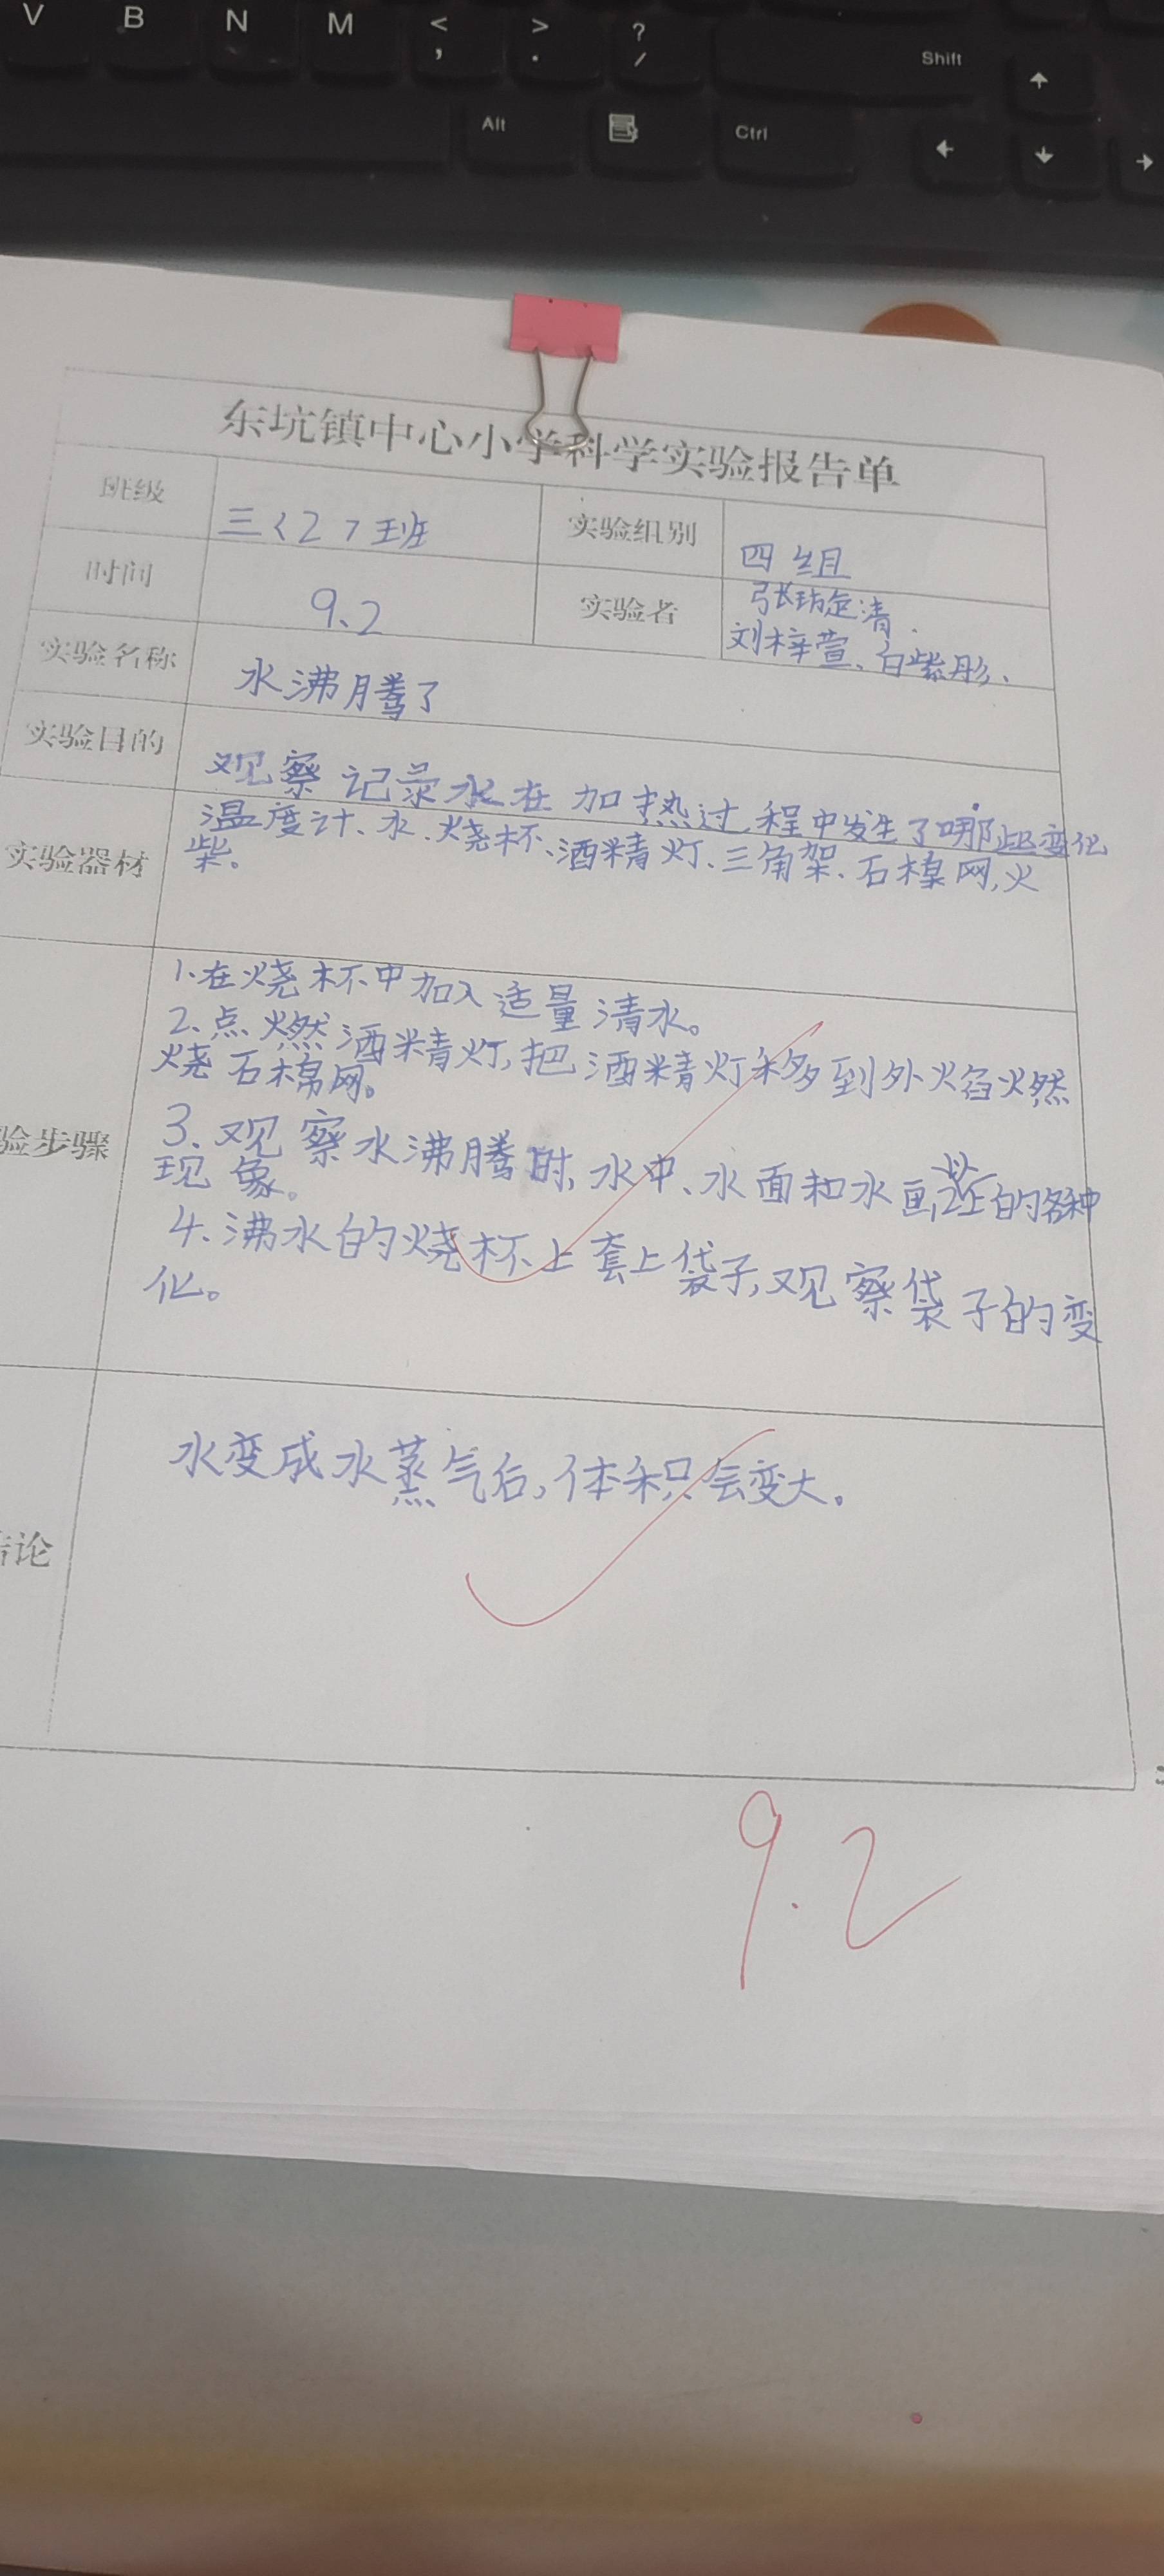 V B N M < , > . ? / Shift ↑
Alt Ctrl ← ↓ →
东坑镇中心小学科学实验报告单
班级 三〈2〉班 实验组别 四组
时间 9.2 实验者 张 清.
刘梓萱、白紫彤、
实验名称 水沸腾了
实验目的 观察记录水在加热过程中发生了哪些变化
实验器材 温度计、水、烧杯、酒精灯、三角架、石棉网,火
柴。
验步骤 1.在烧杯中加入适量清水。
2.点燃酒精灯,把酒精灯移到外火焰燃
烧石棉网。
3.观察水沸腾时,水中、水面和水面上的各种
现象。
4.沸水的烧杯上套上袋子,观察袋子的变
化。
结论 水变成水蒸气后,体积会变大。
9.2